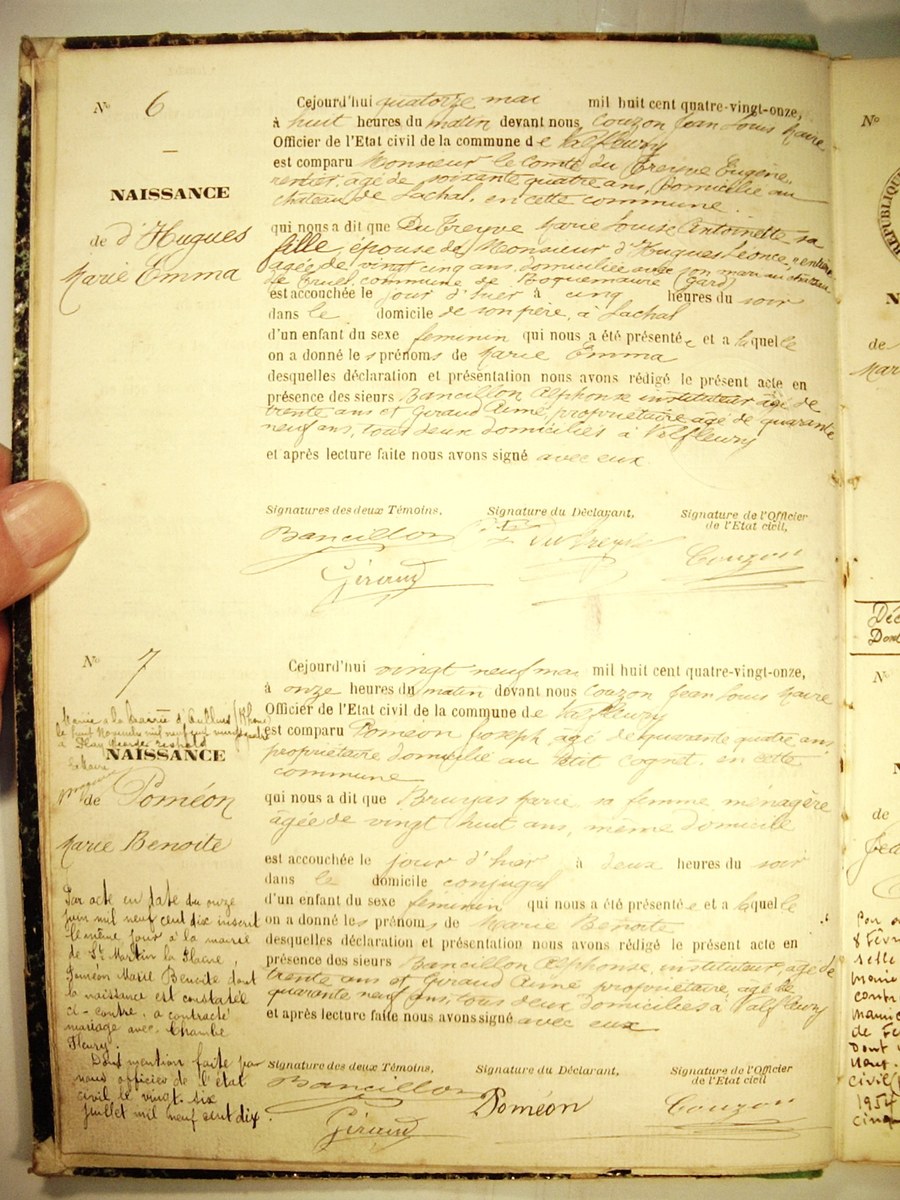 Nº 6
NAISSANCE
de d'Hugues
Marie Emma
Cejourd'hui quatorze mai mil huit cent quatre-vingt-onze,
à huit heures du matin devant nous Couzon Jean Louis Maire
Officier de l'Etat civil de la commune de Valfleury
est comparu Monsieur le Comte du Treyve Eugène,
rentier, âgé de soixante quatre ans, domicilié au
château de Lachal, en cette commune.
qui nous a dit que Du Treyve Marie Louise Antoinette sa
fille, épouse de Monsieur d'Hugues Léonce, rentière
âgée de vingt cinq ans domiciliée avec son mari au château
de Truel, commune de Roquemaure (Gard)
est accouchée le jour d'hier à cinq heures du soir
dans le domicile de son père, à Lachal
d'un enfant du sexe feminin qui nous a été présentée et a laquelle
on a donné les prénoms de Marie Emma
desquelles déclaration et présentation nous avons rédigé le présent acte en
présence des sieurs Bancillon Alphonse instituteur âgé de
trente ans et Giraud Aimé, propriétaire âgé de quarante
neuf ans, tous deux domiciliés à Valfleury
et après lecture faite nous avons signé avec eux
Signatures des deux Témoins, Signature du Déclarant, Signature de l'Officier
de l'Etat civil,
Bancillon du Treyve Couzon
Giraud
Nº 7
Mariée à la mairie d'
le huit Novembre mil neuf cent
à
NAISSANCE
Le Maire
de Poméon
Marie Benoite
Par acte en date du onze
juin mil neuf cent dix inscrit
le même jour à la mairie
de St Martin la Plaine,
Poméon Marie Benoite dont
la naissance est constatée
ci-contre, a contracté
mariage avec Chambe
Fleury.
Dont mention faite par
nous officier de l'état
civil le vingt-six
juillet mil neuf cent dix.
Cejourd'hui vingt neuf mai mil huit cent quatre-vingt-onze,
à onze heures du matin devant nous Couzon Jean Louis Maire
Officier de l'Etat civil de la commune de Valfleury
est comparu Poméon Joseph âgé de quarante quatre ans
propriétaire domicilié au Petit Cognet, en cette
commune
qui nous a dit que Bruyas Marie sa femme, ménagère
âgée de vingt huit ans, même domicile
est accouchée le jour d'hier à deux heures du soir
dans le domicile conjugal
d'un enfant du sexe féminin qui nous a été présentée et a laquelle
on a donné les prénoms de Marie Benoite
desquelles déclaration et présentation nous avons rédigé le présent acte en
présence des sieurs Bancillon Alphonse, instituteur, âgé de
trente ans et Giraud Aimé propriétaire, âgé de
quarante neuf ans, tous deux domiciliés à Valfleury
et après lecture faite nous avons signé avec eux
Signature des deux Témoins, Signature du Déclarant, Signature de l'Officier
de l'Etat civil
Bancillon Poméon Couzon
Giraud
Nº
RÉPUBLIQUE
N
de
Mar
Déc
Dom
N
N
de
Jea
8 Févri
selle
contr
de
Dont
civil
1954
cinq